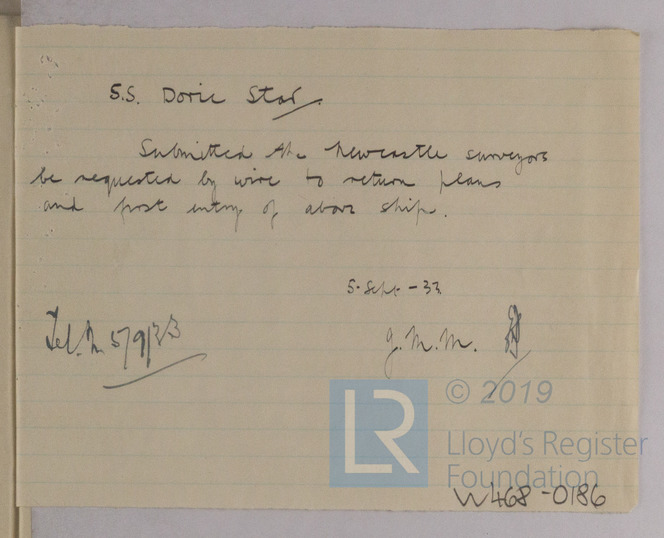 S.S. Doric Star
Submitted the Newcastle surveyors
be requested by wire to return plans
and first entry of above ship.
5-Sept-33
Tel. N. 5/9/33
J.M.M.
© 2019
LR
Lloyd's Register
Foundation
W468-0186